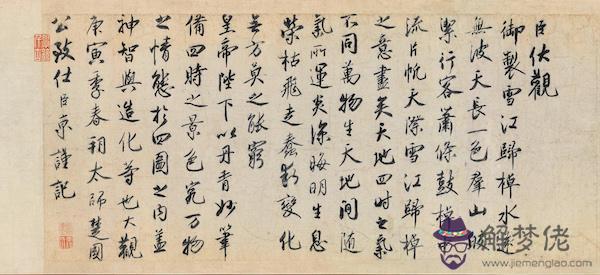 臣伏觀
御製雪江歸棹水遠
無波天長一色羣山皎
潔行客蕭條鼓棹中
流片帆天際雪江歸棹
之意盡矣天地四時之氣
不同萬物生天地間隨
氣所運炎涼晦明生息
榮枯飛走蠢動變化
無方莫之能窮
皇帝陛下以丹青妙筆
備四時之景色究萬物
之情態於四圖之内蓋
神智與造化等也大觀
庚寅季春朔太師楚國
公致仕臣京謹記
解夢佬
www.jiemenglao.com